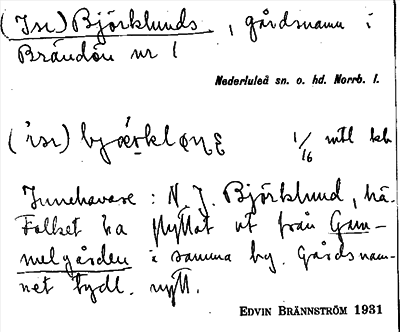 (Isr) Björklunds, gårdsnamn i
Brändön nr 1
Nederluleå sn. o. hd. Norrb. l.
1/16 mtl kb
Innehavare: N. J. Björklund, hä.
Folket ha flyttat ut från Gam-
melgården i samma by. Gårdsnam-
net tydl. nytt.
EDVIN BRÄNNSTRÖM 1931